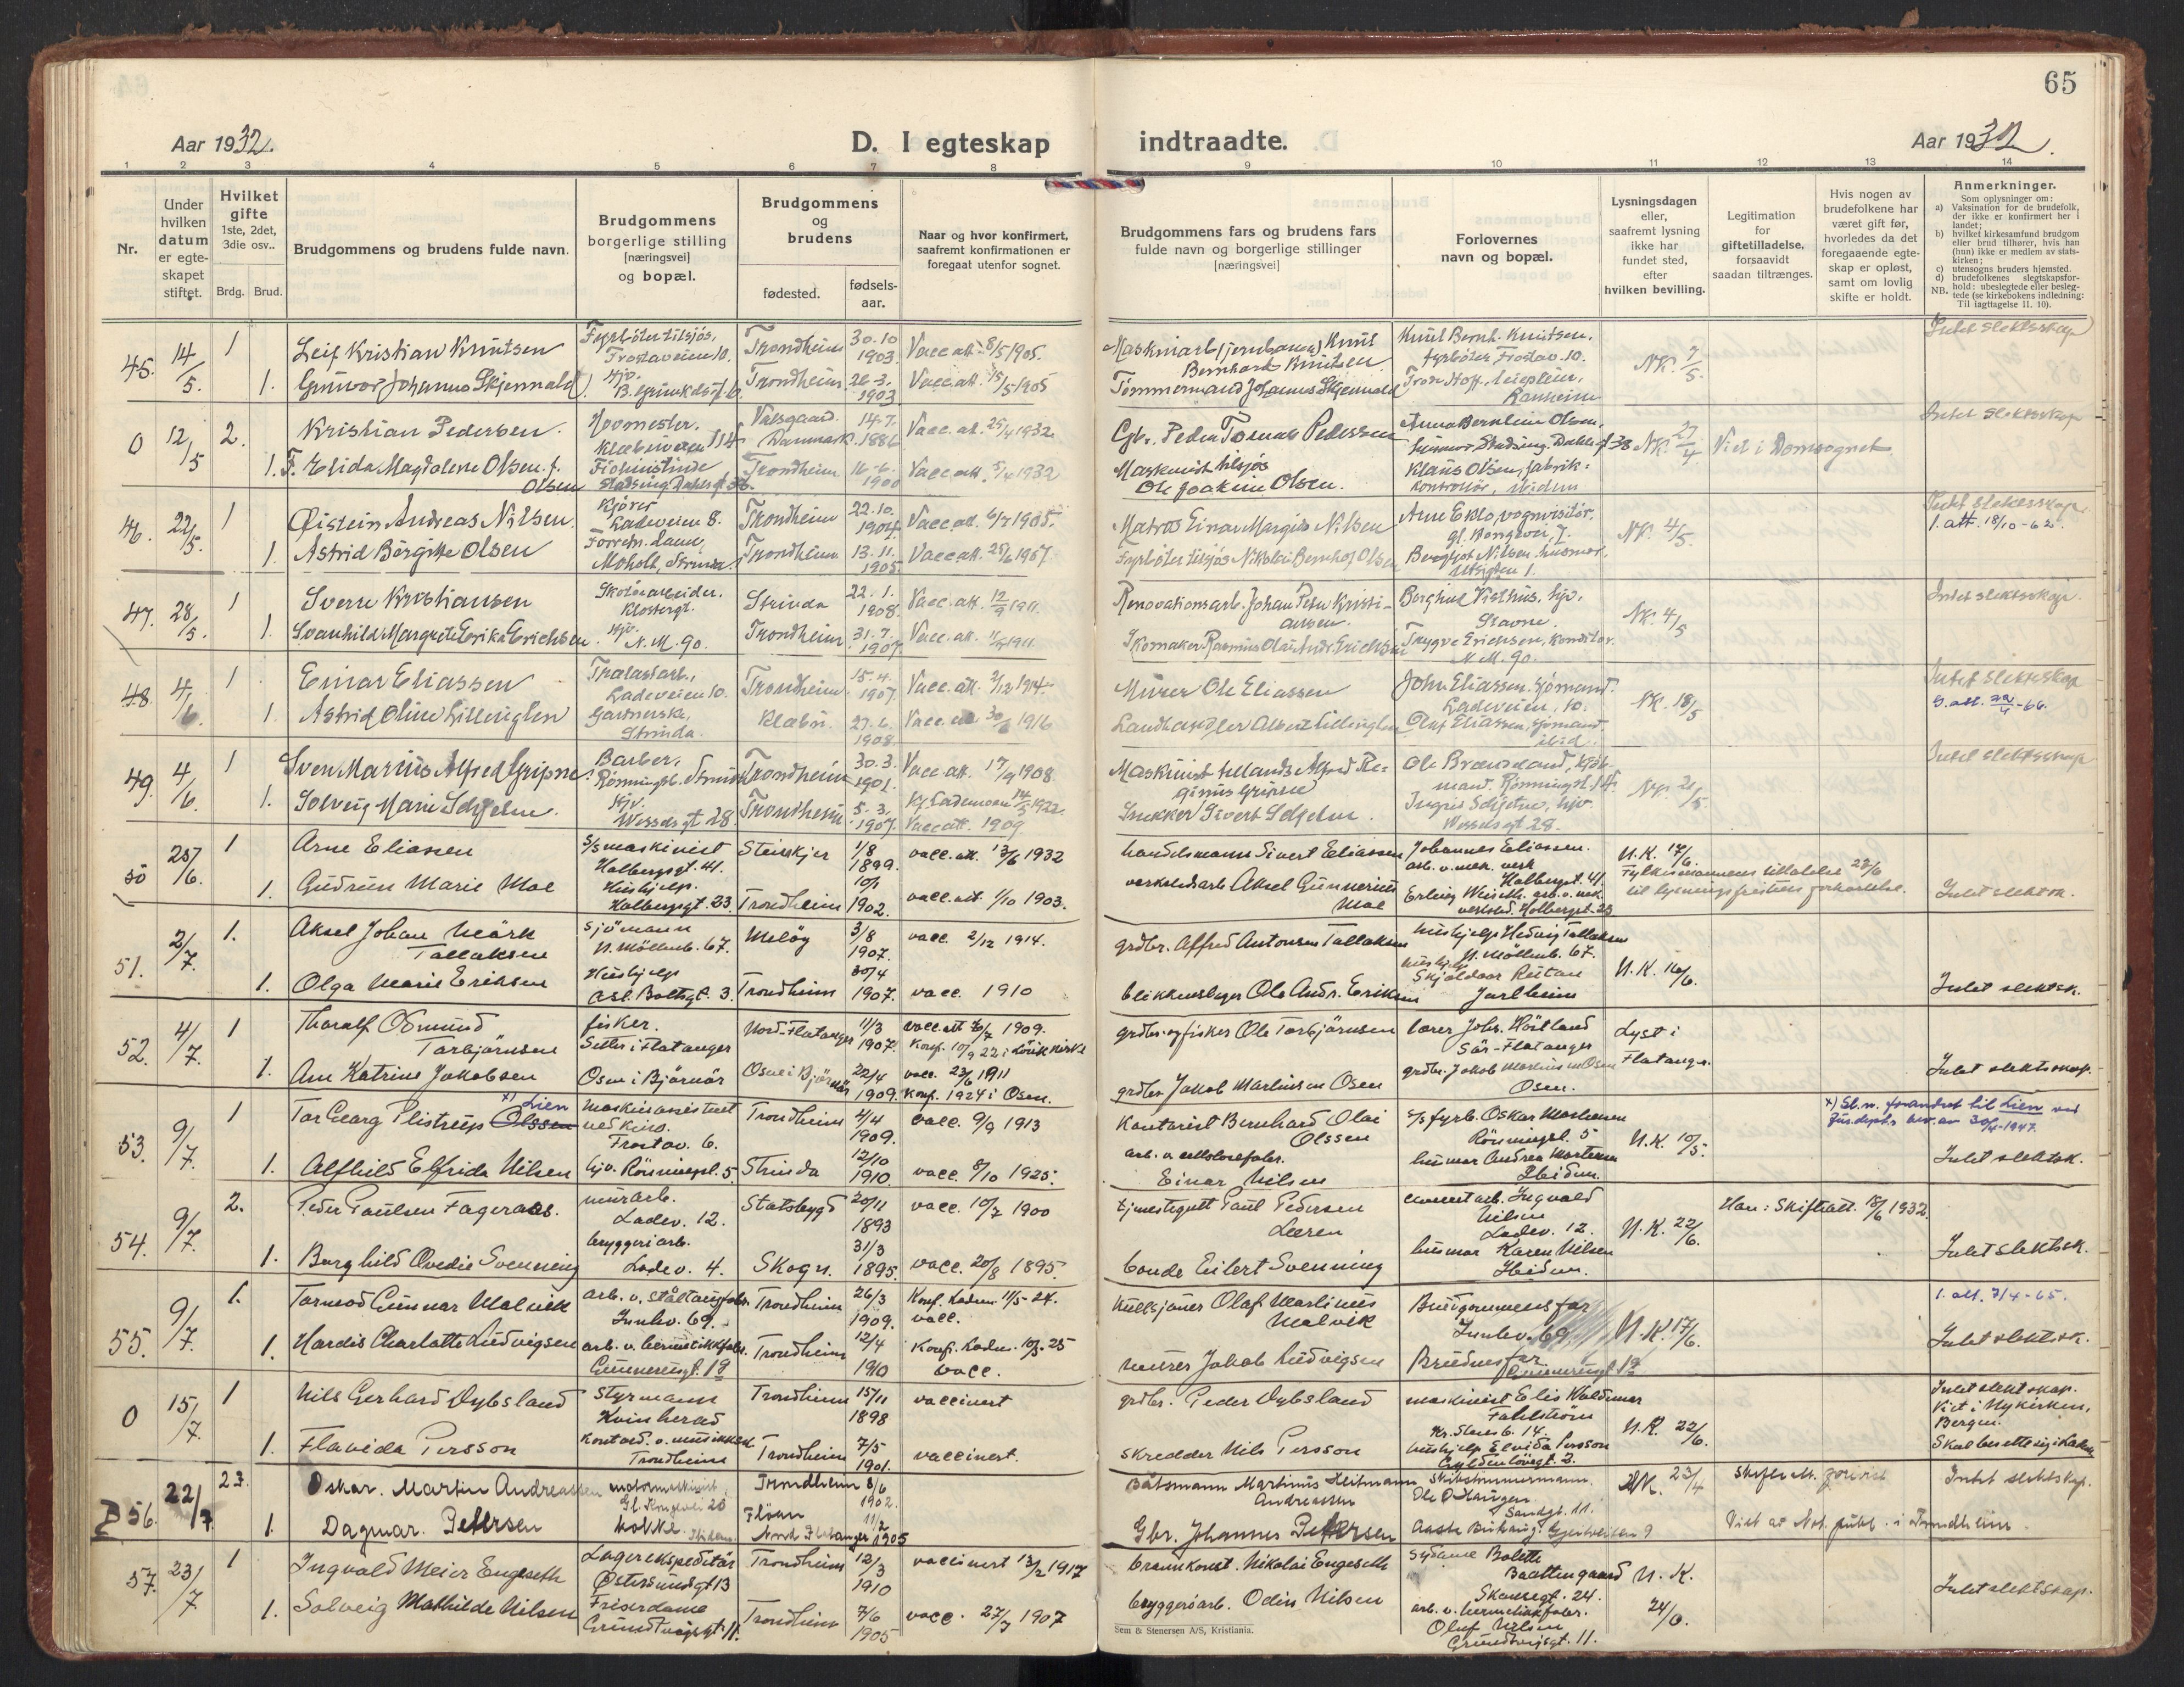 65
Aar 1932.
D. I egteskap
indtraadte.
Aar 1932.
1 2 3 4 5 6 7 8 9 10 11 12 13 14
Nr.
Under hvilken datum er egte-skapet stiftet.
Hvilket gifte 1ste, 2det, 3die osv..
Brdg. Brud.
Brudgommens og brudens fulde navn.
Brudgommens borgerlige stilling [næringsvei] og bopæl.
Brudgommens og brudens
fødested.
fødsels-aar.
Naar og hvor konfirmert, saafremt konfirmationen er foregaat utenfor sognet.
Brudgommens fars og brudens fars fulde navn og borgerlige stillinger [næringsvei]
Forlovernes navn og bopæl.
Lysningsdagen eller, saafremt lysning ikke har fundet sted, efter hvilken bevilling.
Legitimation for giftetilladelse, forsaavidt saadan tiltrænges.
Hvis nogen av brudefolkene har været gift før, hvorledes da det foregaaende egte-skap er opløst, samt om lovlig skifte er holdt.
Anmerkninger.
Som oplysninger om:
a) Vaksination for de brudefolk, der ikke er konfirmert her i landet;
b) hvilket kirkesamfund brudgom eller brud tilhører, hvis han (hun) ikke er medlem av stats-kirken;
c) utensogns bruders hjemsted.
d) brudefolkenes slegtskapsfor-hold: ubeslegtede eller besleg-tede (se kirkebokens indledning: Til Iagttagelse II, 10).
NB.
45. 14/5. 1 Leif Kristian Knutsen Fyrbøter tilsjøs, Frostaveien 10. Trondheim 30.10 1903 Vacc att 8/5 1905. Maskinarb (jernbanen) Knut Bernhard Knutsen Knut Bernh. Knutsen, fyrbøter Frostav. 10. NK. 7/5. Intet slektskap
1. Gunvor Johanne Skjermald Hjv. Trondheim 26.3. 1903 Vacc.att. 15/5 1905 Tømmermand Johannes Skjermald Ranheim
0 12/5 2. Kristian Pedersen Hovmester. Danmark. 14.7. 1886 Vacc. att. 25/4 1932 Gbr. Peder Pedersen Anna Olsen, NK. 27/4 Viet i Domsognet Intet slektskap
1. F. Elida Magdalene Olsen f. Olsen Trondheim 16.6. 1900 Vacc att. 5/4 1932 Maskinist tilsjøs Ole Joakim Olsen. Klaus Olsen, fabrik-kontrollør,
46. 22/5. 1 Øistein Andreas Nilsen Kjører Ladeveien 8. Trondheim 22.10. 1904 Vacc att. 6/7 1905. Matros Einar Margido Nilsen Arne Eklo, vognvisitør, NK. 4/5. Intet slektskap. 1. att. 18/10-62.
1. Astrid Børgitte Olsen Moholt, Strinda Trondheim 13.11. 1905. Vacc att. 25/6 1907. Fyrbøter tilsjøs Nikolai Bernhof Olsen Bergljot Nilsen husmor, Utsigten 1.
47. 28/5. 1 Sverre Kristiansen Skotøiarbeider. Klostergt. Strinda 22.1. 1908. Vacc. att. 12/9 1911. Renovationsarb. Johan Peter Kristiansen. Borghild Visthus, hjv. Stavne. NK. 4/5 Intet slektskap.
1. Svanhild Margrete Erika Erichsen Hjv. N. M. 90. Trondheim 31.7. 1907. Vacc. att. 1911. Skomaker Rasmus Olai Andr. Erichsen Trygve Erichsen, konditor. N. M. 90.
48. 4/6 1 Einar Eliassen Trælastarb., Ladeveien 10. Trondheim 15.4. 1907. Vacc. att. 2/12 1914. Murer Ole Eliassen John Eliassen, sjømand. Ladeveien, 10. NK. 18/5 Intet slektskap
1. Astrid Oline Lillenglen Gartnerske, Strinda. Klæbu. 27.6. 1908. Vacc. att. 1916 Landhandler Albert Lillenglen Olaf Eliassen, sjømand. ibid.
49. 4/6. 1 Sven Marius Alfred Gripne Barber, Trondheim 30.3. 1901. Vacc. att. 17/9 1908 Maskinist tillands Alfred Reginius Gripne NK. 21/5. Intet slektskap
1. Solveig Marie Selgelm. Hjv. Wesselsgt 28. Trondheim 5.3. 1907. Kf. Lademoen 14/5 1922. Vacc att. 1909 Snekker Sivert Selgelm. hjv. Wesselsgt 28.
50 25/6. 1 Arne Eliassen S/s maskinist Holbergsgt. 41. Steinkjer 1/8 1899. vacc. att. 13/6 1932 handelsmann Sivert Eliassen Johannes Eliassen. arb. v. mek. verk Holbergst. 41 N.K. 17/6. Fylkesmannens tillatelse 23/6 til lysningsfristens forkortelse.
1. Gudrun Marie Moe Hushjelp. Holbergsgt. 23. Trondheim 10/1 1902. vacc. att. 1/10 1903. verkstedarb Aksel Gunnerius Moe verksted. Holbergst. 23 Intet slektsk.
51. 2/7. 1. Aksel Johan Mörk Tollaksen Sjömann N. Möllenb. 67. Melöy 3/8 1907. vacc. 2/12 1914. grdbr. Alffred Antonsen Tollaksen hushjelp Hedvig Tollaksen N. Möllenb. 67.
1. Olga Marie Eriksen Hushjelp Asl. Boltsgt. 3. Trondheim 30/4 1907. vacc. 1910 blikkenslager Ole Andr. Eriksen Skjoldvor Reitan Jarlheim N.K. 16/6. Intet slektsk.
52. 4/7. 1 Tharalf Osmund Torbjörnsen fisker. Setter i Flatanger Nord-Flatanger 11/3 1907. vacc. att 1909. Konf. 10/9 22 i Lövik kirke grdbr. og fisker Ole Torbjörnsen lærer Johs. Hörtland Sör-Flatanger Lyst i Flatanger.
1. Ane Katrine Jakobsen Osen i Bjørnør Osen i Bjørnør 22/4 1909. vacc. 23/6 1911 Konf. 1924 i Osen. grdbr. Jakob Martinsen Osen grdbr. Jakob Martinsen Osen Osen. Intet slektskap.
53. 9/7. 1 Tor Georg Plistrup Olssen x) Lien maskinassistent ved kino. Frostav. 6. Trondheim 4/4 1909. vacc. 9/9 1913 Kontorist Bernhard Olai Olssen s/s fyrb. Oskar Mortensen Rönningsl. 5 N.K. 10/5. x) Sl.n. forandret til Lien ved Jus.dept.s bev. av 30/4-1947.
1. Alfhild Elfrida Nilsen hjv. Rönningsl. 5 Strinda 12/10 1910. vacc. 8/10 1925. arb. v. cellulosefabr. Einar Nilsen husmor Andrea Mortensen Ibidem. Intet slektsk.
54. 9/7. 2. Peder Paulsen Fageraas. murarb. Ladev. 12. Statsbygd 20/11 1893 vacc. 10/7 1900 tjenestegutt Paul Pedersen Leeren cementarb. Ingvald Nilsen Ladev. 12. N.K. 22/6. Han: Skifteatt. 18/6 1932.
1. Borghild Ovedie Svenning bryggeriarb. Ladev. 4. Skogn. 31/3 1895. vacc. 20/8 1895. bonde Eilert Svenning husmor Karen Nilsen Ibidem. Intet slektsk.
55. 9/7. 1. Tormod Gunnar Malvik arb. v. ståltaugfabr. Innhv. 69. Trondheim 26/3 1909. Konf. Ladem 11/5-24. vacc. Olaf Martinus Malvik Brudgommens far Innhv. 69. N.K. 17/6. 1. att. 7/4-65.
1. Hardis Charlotte Ludvigsen arb. v. hermetikkfabr. Gunnerusgt. 19 Trondheim 12/4 1910 Konf. Ladm. 10/5-25 vacc. murer Jakob Ludvigsen Brudens far Gunnerusgt 19 Intet slektsk.
0 15/7. 1 Nils Gerhard Dybsland Styrmann Kvinherad Trondheim 15/11 1898 vaccinert grdbr. Peder Dybsland maskinist Elis Valdemar Fahlström N.K. 22/6. Intet slektskap. Viet i Nykirken, Bergen.
1. Flavida Persson Trondheim Trondheim 7/5 1901. vaccinert. skredder Nils Persson hushjelp Elvida Persson Gyldenlövsgt. 2.
56. 22/7 2 Oskar. Martin Andreassen motormaskinist, Gl. Kongevei 20 Trondheim 8/6 1902. Båtsmann Martinus Heitmann Andreassen Skibstømmermann. Ole O Haugen Sandgt. 11. NK. 23/4 Intet slektskap.
1. Dagmar. Petersen kokke. Ibidem. Nord Flatanger 11/2 1905 Gbr. Johannes Petersen Viet av Not. publ. i Trondheim
57. 23/7 1 Ingvald Meier Engeseth Lagerekspeditör Østersundsgt 13 Trondheim 12/3 1910 vaccinert 13/2 1917 brannkonst. Nikolai Engeseth Sydame Bolette Skansegt. 24. N.K. 24/6.
1. Solveig Mathilde Nilsen Friserdame Grundtvigsgt. 11. Trondheim 7/6 1905 vacc. 27/7 1907 bryggeriarb. Odin Nilsen arb. v. hermetikkfabr. Oluf Nilsen Grundtvigsgt. 11. Intet slektskap.
Sem & Stenersen A/S, Kristiania.